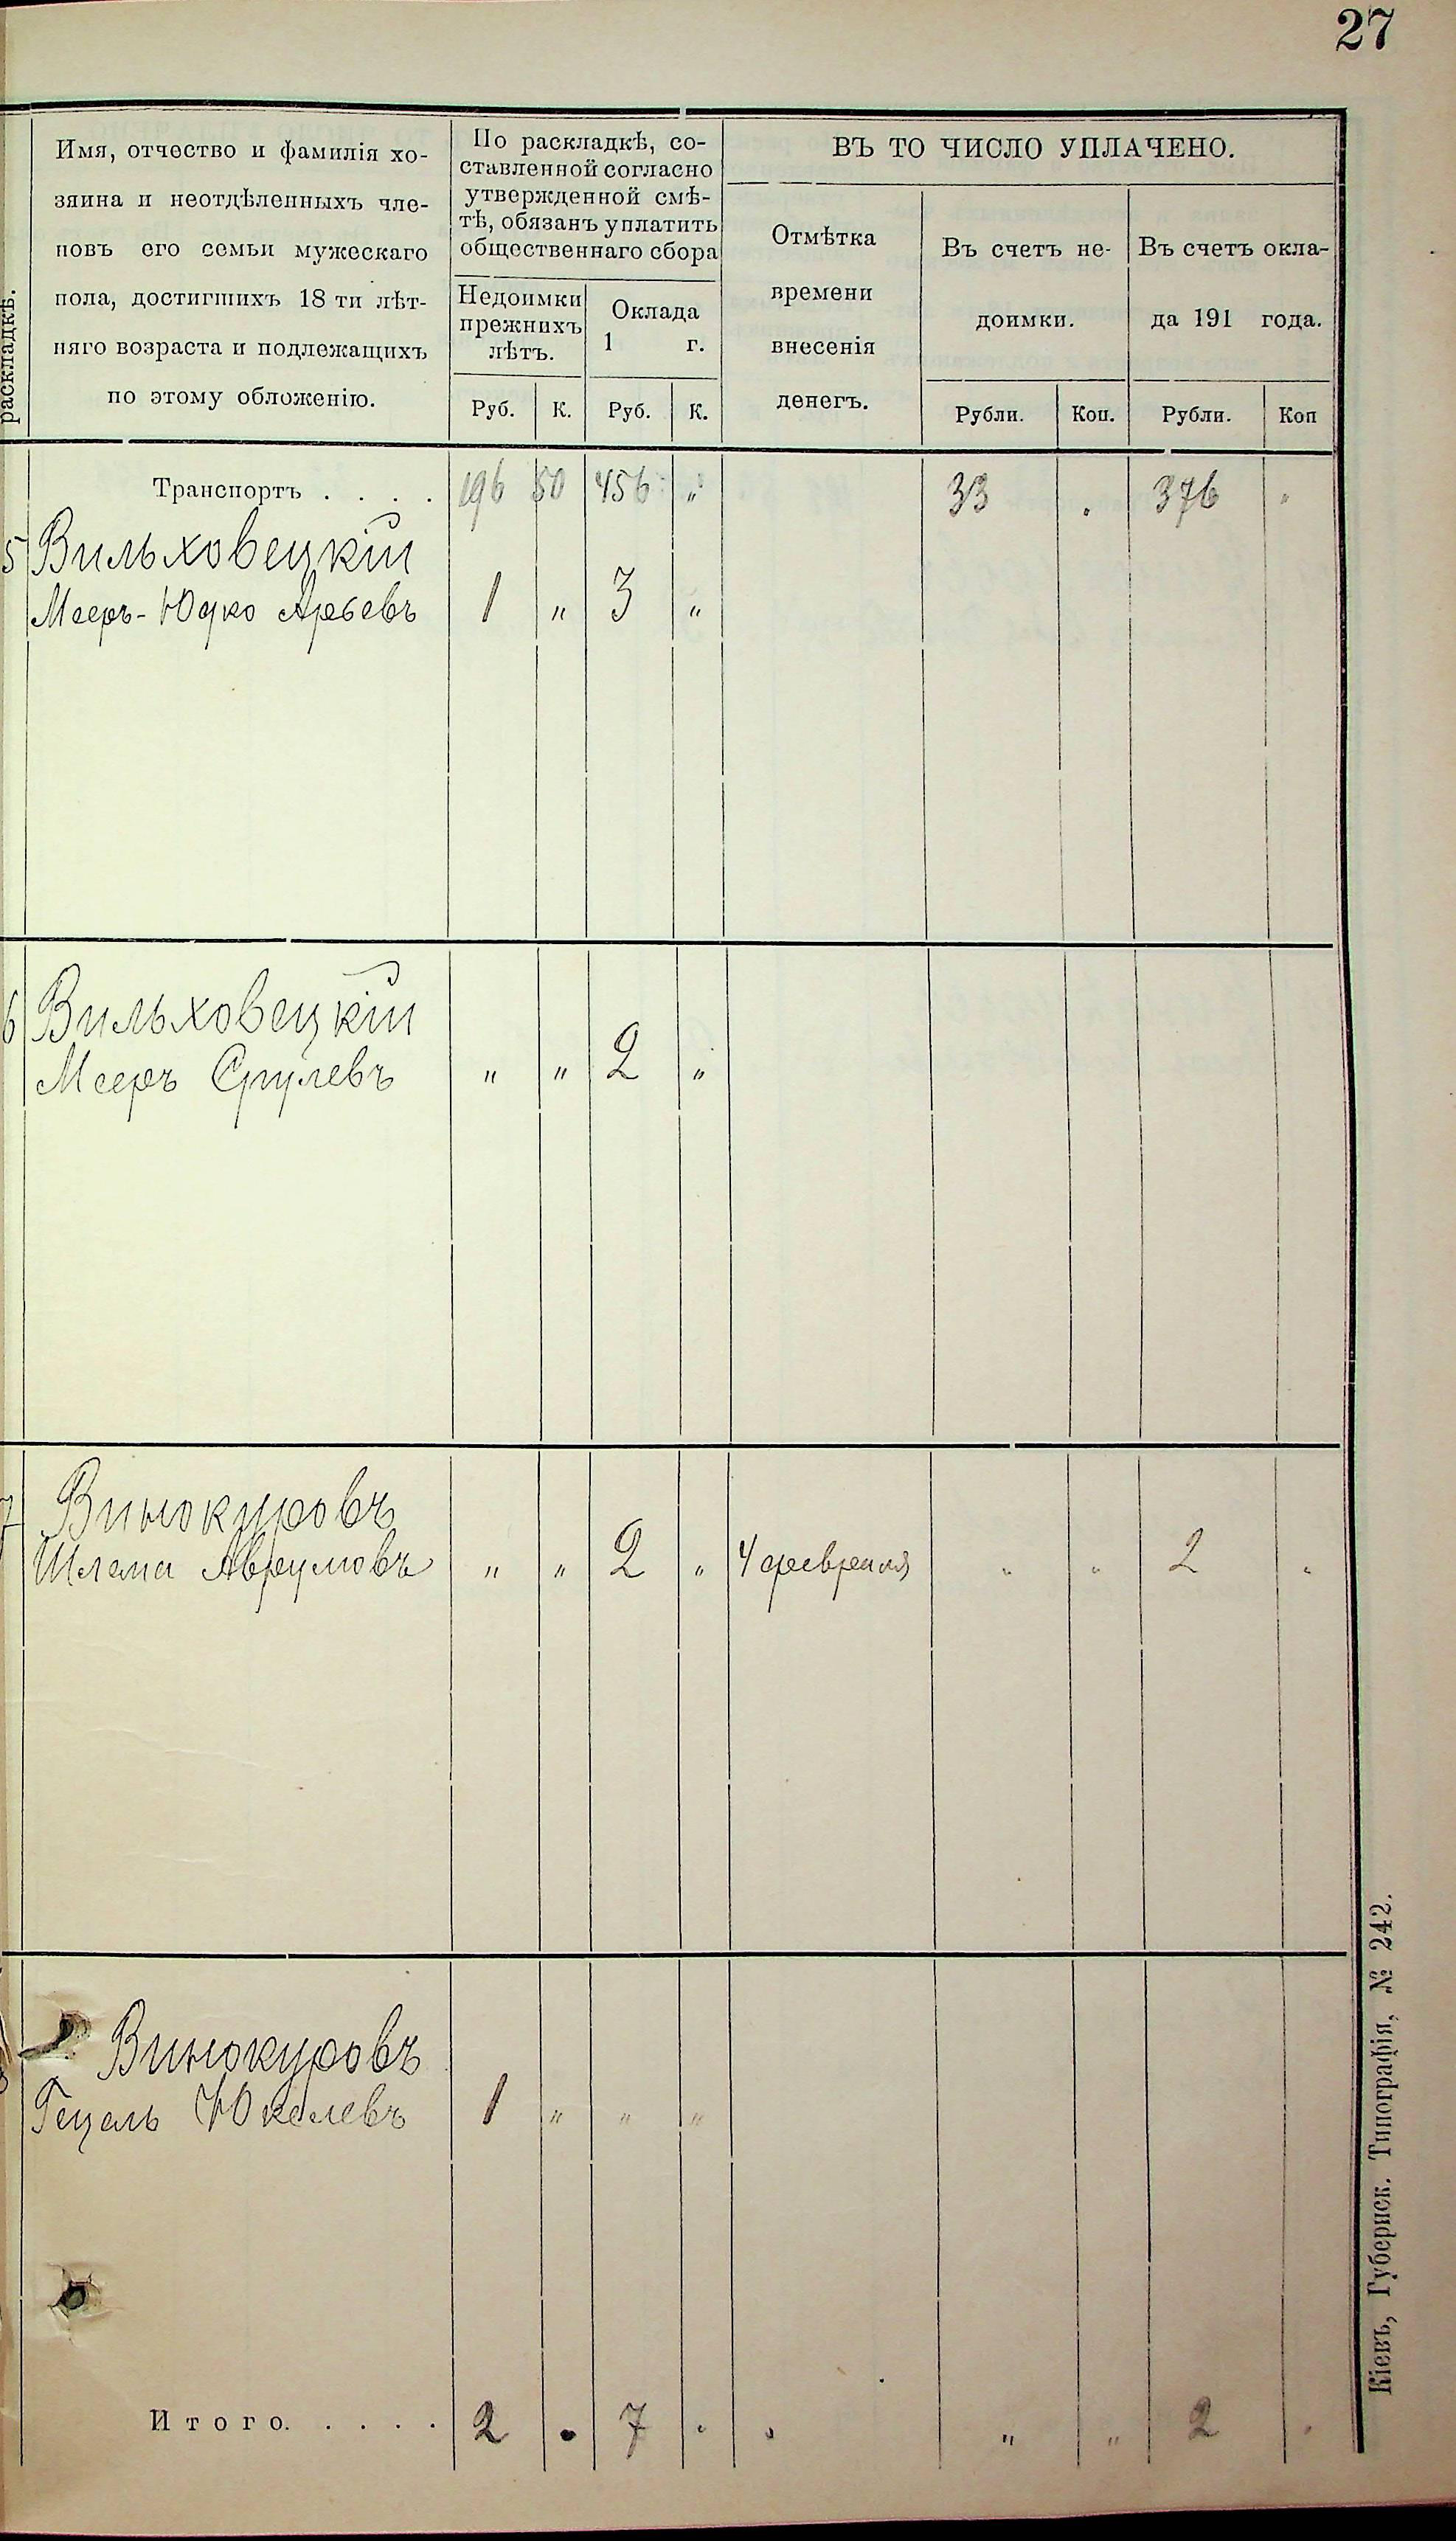 27
раскладкѣ.
Имя, отчество и фамилія хо-
зяина и неотдѣленныхъ чле-
новъ его семьи мужескаго
пола, достигшихъ 18 ти лѣт-
няго возраста и подлежащихъ
по этому обложенію.
По раскладкѣ, со-
ставленной согласно
утвержденной смѣ-
тѣ, обязанъ уплатить
общественнаго сбора
Недоимки
прежнихъ
лѣтъ.
Оклада
1 г.
ВЪ ТО ЧИСЛО УПЛАЧЕНО.
Отмѣтка
времени
внесенія
денегъ.
Въ счетъ не-
доимки.
Въ счетъ окла-
да 191 года.
Руб. К. Руб. К. Рубли. Коп. Рубли. Коп
Транспортъ . . . . 196 50 456 „ 33 „ 376 „
5 Вильховецкій
Мееръ-Юдко Арьевъ 1 „ 3 „
6 Вильховецкій
Мееръ Срулевъ „ „ 2 „
7 Винокуровъ
Шлема Аврумовъ „ „ 2 „ 4 февраля „ „ 2 „
Винокуровъ
Гецель Юкелевъ 1 „ „ „
Итого. . . . . 2 . 7 . . „ „ 2 .
Кіевъ, Губернск. Типографія, № 242.